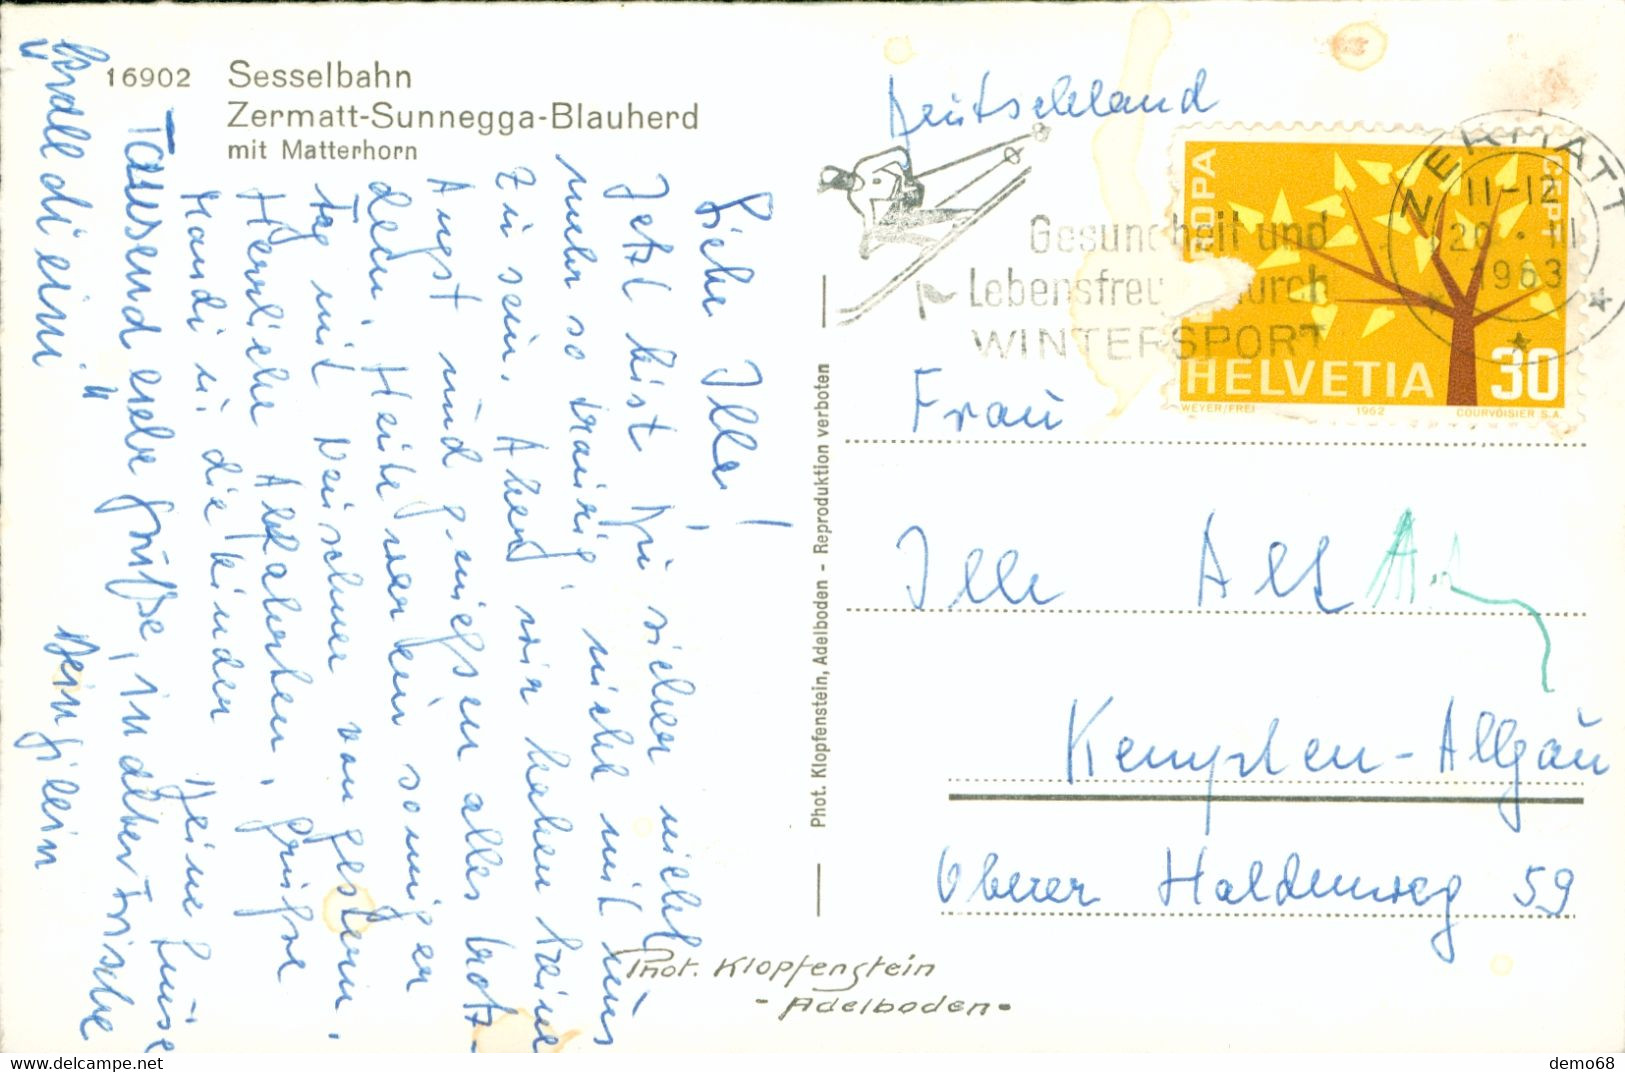 16902 Sesselbahn
Zermatt-Sunnegga-Blauherd
mit Matterhorn
Liebe Ille!
Jetzt bist Du sicher nicht
mehr so traurig, nicht mit uns
zu sein. Aber wir haben keine
Angst und geniessen alles trotz-
dem. Heute war kein sonniger
Tag mit Neuschnee von gestern.
Herrliche Abfahrten, grüsse
Mandi u. die Kinder Deine Luise
Tausend liebe Grüße, in alter Frische
Dein
Phot. Klopfenstein, Adelboden - Reproduktion verboten
Phot. Klopfenstein
- Adelboden -
Deutschland
Gesundheit und
Lebensfreu durch
WINTERSPORT
ZERMATT
11-12
20.II
1963
EUROPA
CEPT
HELVETIA 30
WEYER/FREI 1962 COURVOISIER S.A.
Frau
Ille Alt
Kempten-Allgäu
Oberer Haldenweg 59
delcampe.net
demo68